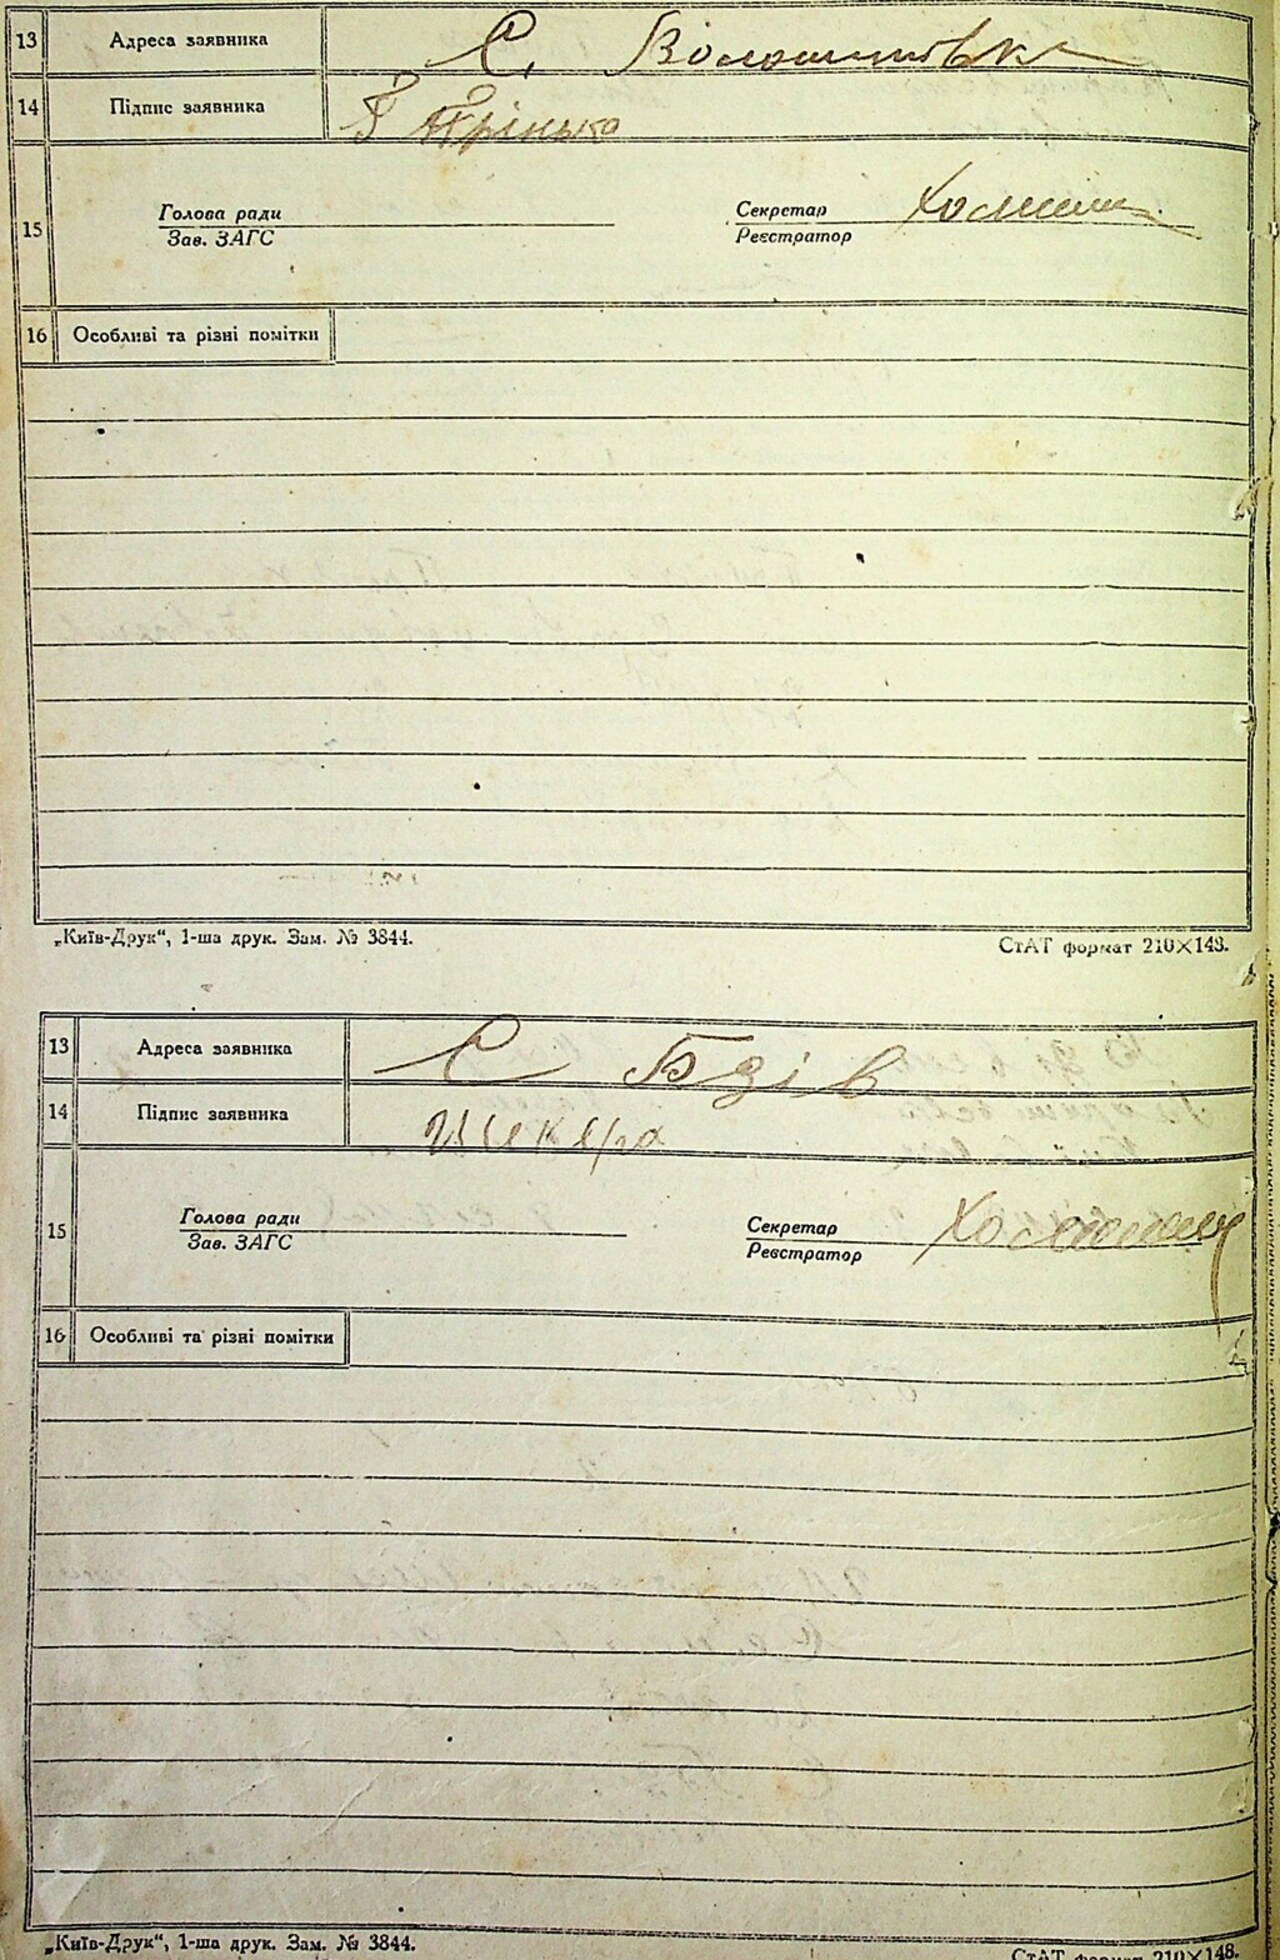 13 Адреса заявника С. Волошиновка
14 Підпис заявника Грінько
15 Голова ради Секретар
Зав. ЗАГС Реєстратор
16 Особливі та різні помітки
„Київ-Друк“, 1-ша друк. Зам. № 3844. СтАТ формат 210×148.
13 Адреса заявника С Бзів
14 Підпис заявника Шкяра
15 Голова ради Секретар
Зав. ЗАГС Реєстратор
16 Особливі та різні помітки
„Київ-Друк“, 1-ша друк. Зам. № 3844. СтАТ формат 210×148.